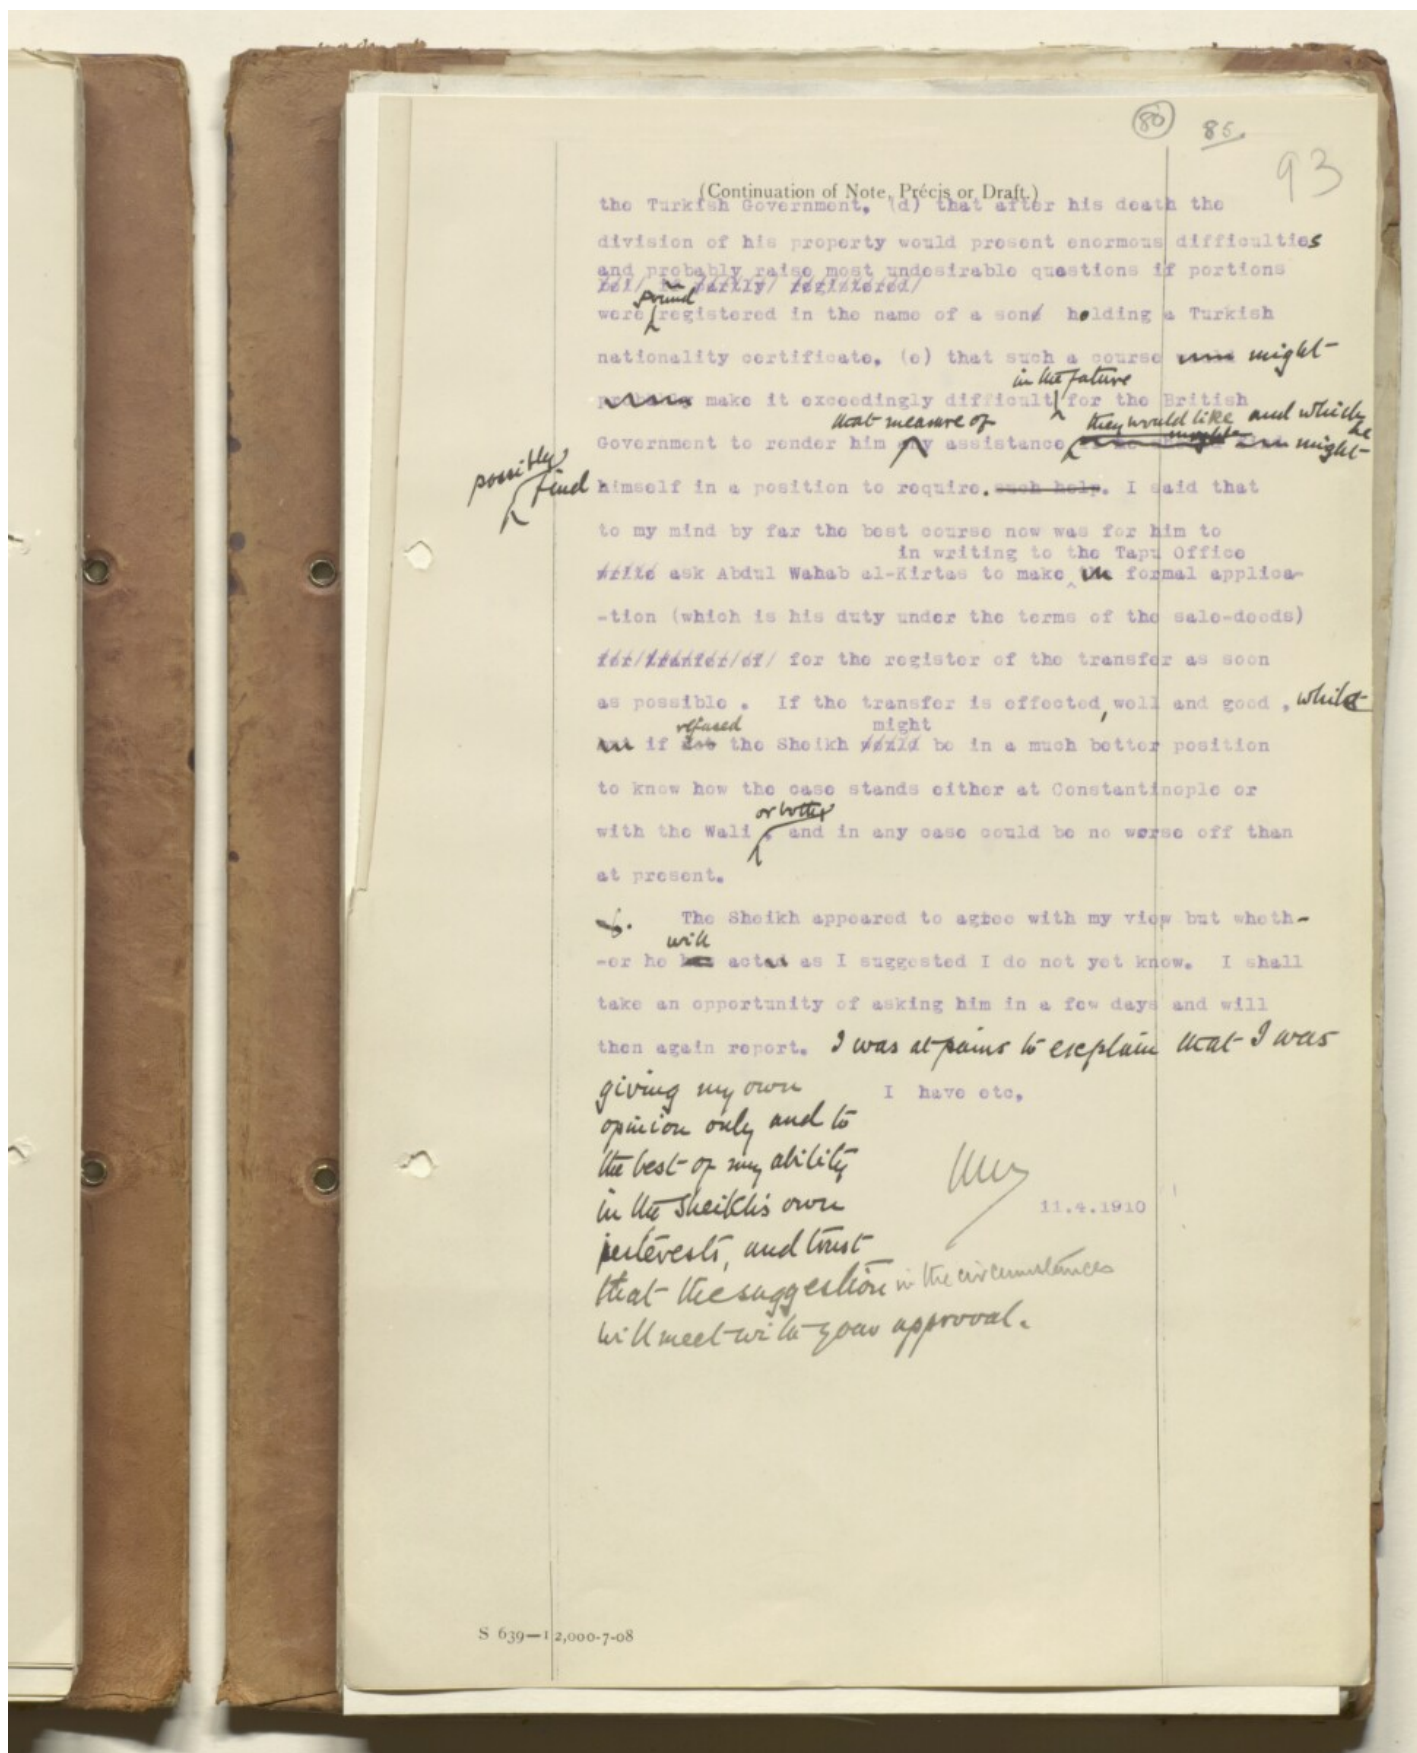 80
85.
93
(Continuation of Note, Précis or Draft.)
the Turkish Government. (d) that after his death the
division of his property would present enormous difficulties
and probably raise most undesirable questions if portions
found
were registered in the name of a son holding a Turkish
nationality certificate. (e) that such a course might
in the future
make it exceedingly difficult for the British
that measure of they would like and which he
Government to render him any assistance might
possibly find himself in a position to require. such help. I said that
to my mind by far the best course now was for him to
in writing to the Tapu Office
write ask Abdul Wahab al-Kirtas to make formal applica-
-tion (which is his duty under the terms of the sale-deeds)
for/tranfer/of/ for the register of the transfer as soon
as possible . If the transfer is effected, well and good , whilst
refused might
but if the Sheikh would be in a much better position
to know how the case stands either at Constantinople or
or both
with the Wali , and in any case could be no worse off than
at present.
6. The Sheikh appeared to agree with my view but wheth-
will
-er he has acted as I suggested I do not yet know. I shall
take an opportunity of asking him in a few days and will
then again report. I was at pains to explain that I was
giving my own
I have etc,
opinion only and to
the best of my ability
in the Sheikh's own
11.4.1910
interests, and trust
that the suggestion in the circumstances
will meet with your approval.
S 639—12,000-7-08